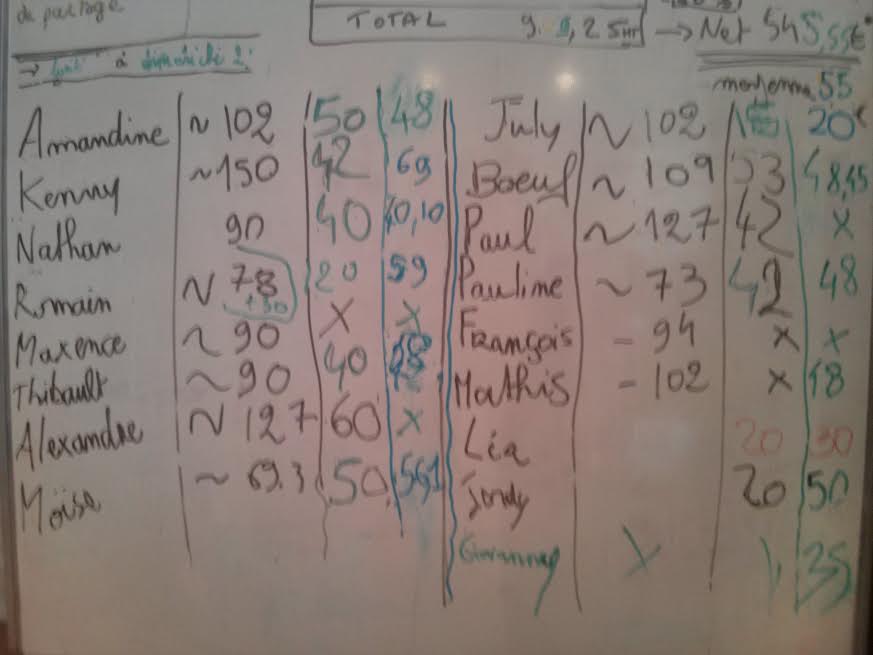 de partage
TOTAL
→ Net 545,55€
→ à dimanche 2
moyenne 55
Amandine ~ 102 50 48
Kenny ~150 42 69
Nathan 90 40 40,10
Romain ~ 78 +30 20 59
Maxence ~ 90 X X
Thibault ~ 90 40
Alexandre ~ 127 60 X
Moïse ~ 69.3 50
July ~ 102 20€
Boeuf ~ 109 53 48,45
Paul ~ 127 42 X
Pauline ~ 73 42 48
François - 94 X X
Mathis - 102 X 48
Léa 20 30
Jordy 20 50
X 35